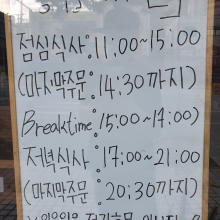 점심식사:11:00~15:00
(마지막주문:14:30까지)
Breaktime:15:00~17:00
저녁식사:17:00~21:00
(마지막주문:20:30까지)